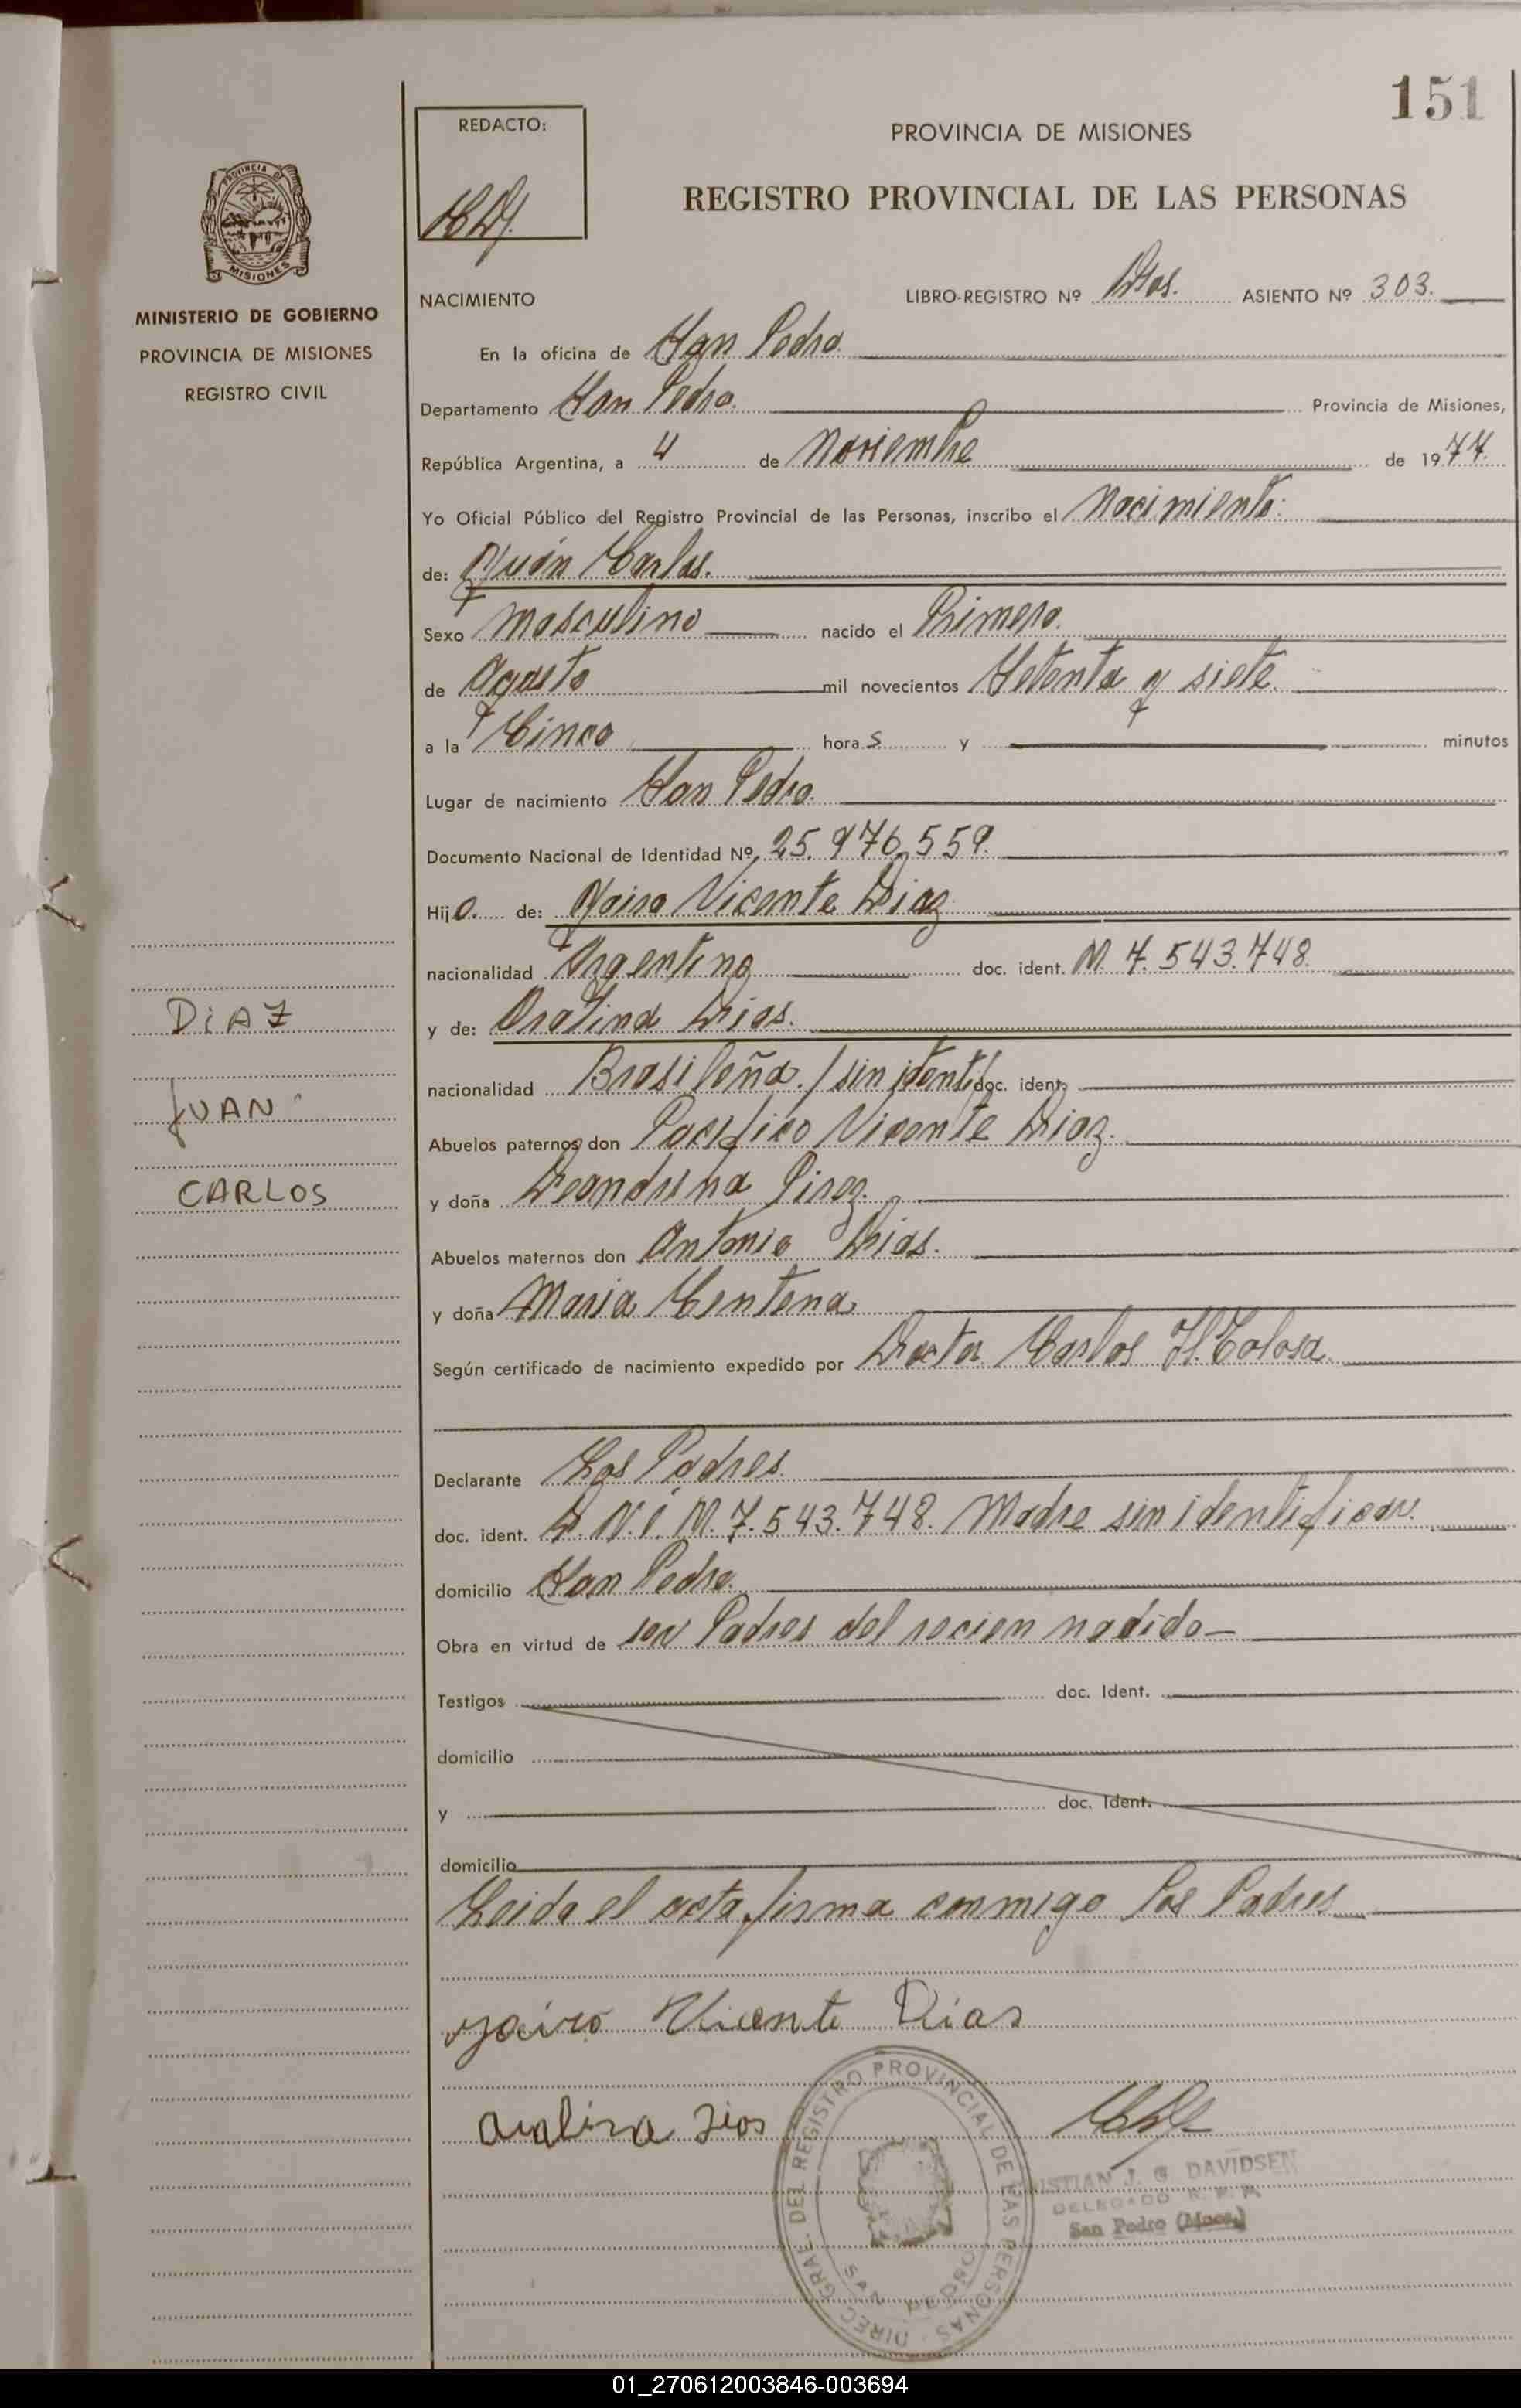 151
REDACTO:
PROVINCIA DE MISIONES
REGISTRO PROVINCIAL DE LAS PERSONAS
PROVINCIA DE
MISIONES
MINISTERIO DE GOBIERNO
PROVINCIA DE MISIONES
REGISTRO CIVIL
NACIMIENTO
LIBRO-REGISTRO Nº Dos. ASIENTO Nº 303.
En la oficina de San Pedro
Departamento San Pedro. Provincia de Misiones,
República Argentina, a 4 de Noviembre de 1977.
Yo Oficial Público del Registro Provincial de las Personas, inscribo el Nacimiento:
de: Juán Carlos.
Sexo masculino nacido el Primero.
de Agosto mil novecientos Setenta y siete.
a la Cinco hora s y minutos
Lugar de nacimiento San Pedro.
Documento Nacional de Identidad Nº 25.976,559.
Hijo. de: Jairo Vicente Diaz
nacionalidad Argentina doc. ident. M 7.543.748.
y de: Dias.
nacionalidad Brasileña. / sin identi doc. ident.
Abuelos paternos don Pacifico Vicente Diaz.
y doña Leandrina Pirez.
Abuelos maternos don Antonio Dias.
y doña Maria Centena
Según certificado de nacimiento expedido por Doctor Carlos H. Tolosa.
Declarante Los Padres.
doc. ident. D.N.I. M. 7.543.748. Madre sin identificar.
domicilio San Pedro.
Obra en virtud de ser Padres del recien nadido
Testigos doc. Ident.
domicilio
y doc. Ident.
domicilio
Leida el acta, firma conmigo los Padres
DiAZ
JUAN
CARLOS
Jairo Vicente Dias
Dios
DIREC. GRAL. DEL REGISTRO PROVINCIAL DE LAS PERSONAS
SAN PEDRO
ISTIAN J. G. DAVIDSEN
DELEGADO R. P. P.
San Pedro (Mnes.)
01_270612003846-003694